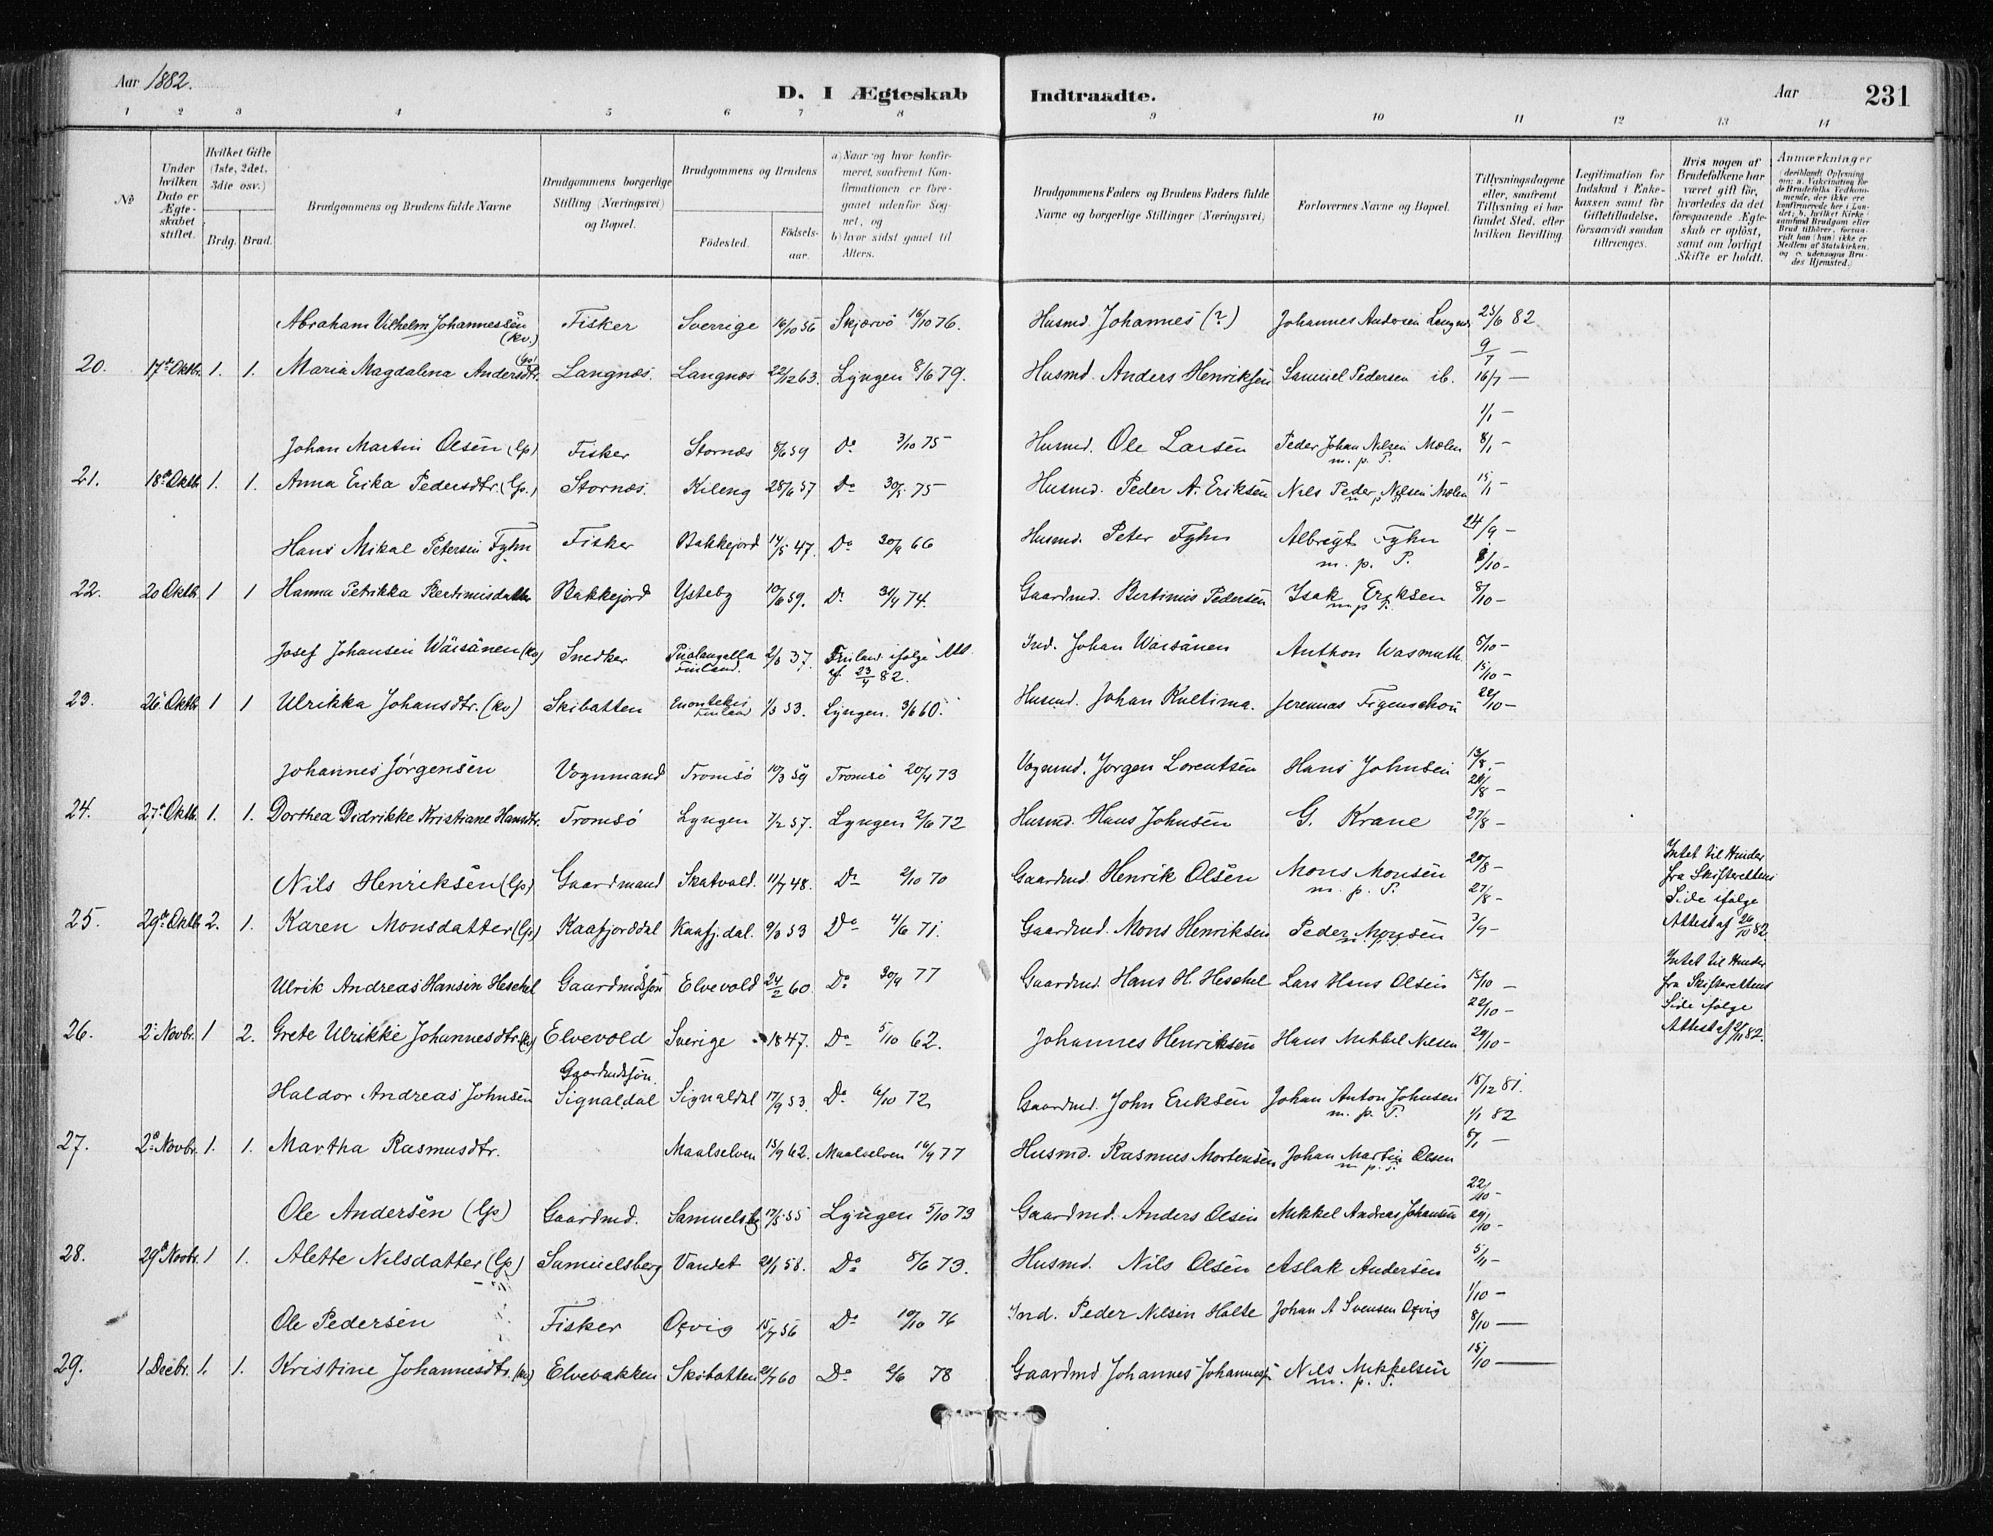 Aar 1882.
D. I Ægteskab
Indtraadte.
Aar
231
1 2 3 4 5 6 7 8 9 10 11 12 13 14
No
Under hvilken Dato er Ægteskabet stiftet.
Hvilket Gifte (1ste, 2det, 3die osv.)
Brdg. Brud.
Brudgommens og Brudens fulde Navne
Brudgommens borgerlige Stilling (Næringsvei) og Bopæl.
Brudgommens og Brudens
Födested.
Födselsaar.
a) Naar og hvor konfirmeret, saafremt Konfirmationen er foregaaet udenfor Sognet, og
b) hvor sidst gaaet til Alters.
Brudgommens Faders og Brudens Faders fulde Navne og borgerlige Stillinger (Næringsvei)
Forlovernes Navne og Bopæl.
Tillysningsdagene eller, saafremt Tillysning ei har fundet Sted, efter hvilken Bevilling
Legitimation for Indskud i Enkekassen samt for Giftetilladelse, forsaavidt saadan tiltrænges.
Hvis nogen af Brudefolkene har været gift för, hvorledes da det foregaaende Ægteskab er oplöst, samt om lovligt Skifte er holdt.
Anmærkninger
(deriblandt Oplysning om: a. Vaccination for de Brudefolks Vedkommende, der ikke ere konfirmerede her i Landet; b. hvilket Kirkesamfund Brudgom eller Brud tilhörer, forsaavidt han (hun) ikke er Medlem af Statskirken, og c. udensogns Brudes Hjemsted.)
Abraham Vilhelm Johannessen (kv.) Fisker Sverrige 16/10 56 Skjærvö 16/10 76. Husmd. Johannes (?) Johannes Andersen Langnes 25/6 82
9/7 —
20. 17de Oktb. 1. 1. Maria Magdalena Andersdtr. Langnæs. Langnæs 22/12 63. Lyngen 8/6 79. Husmd. Anders Henriksen Samuel Pedersen ib. 16/7 —
1/1 —
Johan Martin Olsen (Lp) Fisker Stornæs 8/6 59 Do 3/10 75 Husmd. Ole Larsen Peder Johan Nilsen Mælen m. p. P. 8/1 —
21. 18de Oktb. 1. 1. Anna Erika Pedersdtr. (Lp.) Stornæs. Kileng 28/6 57 Do 75 Husmd. Peder A. Eriksen Nils Peder Nilsen Mælen 15/1 —
Hans Mikal Petersen Fyhn Fisker Bakkejord 14/5 47. Do 30/9 66 Husmd. Peter Fyhn Albrigt Fyhn m. p. P. 24/9 —
22. 20 Oktb. 1 1 Hanna Petrikka Bertinusdatter Bakkejord Ysteby 10/6 59. Do 74. Gaardmd. Bertinius Pedersen Isak Eriksen m p P. 8/10 —
Josef Johansen Wäisänen (kv) Snedker Finland. 37. Finland ifölge Att. af 23/4 82. Ind. Johan Waisänen Anthon Wasmuth
15/10 —
23. 26 Oktb. 1 1 Ulrikka Johansdtr. (kv) Skibatten Enontekis Finland 53. Lyngen. 3/6 60. Husmd. Johan Kultima. Jeremias Figenschou 22/10 —
Johannes Jørgensen Vognmand Tromsö 10/3 59 Tromsö 20/4 73 Vognmd. Jørgen Lorentsen Hans Johnsen 13/8 —
20/8 —
24. 27de Oktb. 1. 1. Dorthea Didrikke Kristiane Hansdtr. Tromsö Lyngen 7/2 57. Lyngen 2/6 72 Husmd. Hans Johnsen G. Krane 27/8 —
Nils Henriksen (Lp) Gaardmand Skatvold. 11/7 48. Do 2/10 70 Gaardmd. Henrik Olsen Mons Monsen m. p. P. 20/8 —
27/8 —
Intet til Hinder fra Skifterettens Side ifølge Attest af 26/10 82.
25. 29de Oktb. 2. 1. Karen Monsdatter (Lp) Kaafjorddal Kaafj.dal. 53 Do 4/6 71. Gaardmd. Mons Henriksen Peder Monsen 3/9 —
Ulrik Andreas Hansen Heschel Gaardmdsøn Elvevold 24/2 60 Do 30/9 77 Gaardmd. Hans H. Heschel Lars Hans Olsen 15/10 —
22/10 —
Intet til Hinder fra Skifterettens Side ifølge Attest af 2/11 82.
26. 2. Novbr. 1 2. Grete Ulrikke Johannesdtr. (kv) Elvevold Sverige 1847. Do 5/10 62. Johannes Henriksen Hans Mikkel Nilsen 29/10 —
Haldor Andreas Johnsen Gaardmdsøn. Signaldal Signaldal 17/9 53. Do 6/10 72. Gaardmd. John Eriksen Johan Anton Johnsen m. p. P. 18/12 81.
1/1 82
27. 2de Novbr. 1. 1. Martha Rasmusdtr. Maalselven 15/9 62. Maalselven 16/9 77 Husmd. Rasmus Mortensen Johan Martin Olsen m. p. P.
22/10 —
Ole Andersen (Lp) Gaardmd. Samuelsbg 17/5 55 Lyngen 5/10 73 Gaardmd. Anders Olsen Mikkel Andreas Johansen 29/10 —
28. 29de Novbr. 1 1. Alette Nilsdatter (Lp) Samuelsberg Vandet 58. Do 8/6 73. Husmd. Nils Olsen Aslak Andersen 5/11 —
1/10 —
Ole Pedersen Fisker Oxvig 15/7 56 Do 10/10 76 Ind. Peder Nilsen Halte Johan A Svensen Oxvig 8/10 —
29. 1 Decbr. 1. 1. Kristine Johannesdtr. (kv) Elvebakken Skibatten 60 Do 2/6 78 Gaardmd Johannes Johannesen Nils Mikkelsen m. p. P. 15/10 —